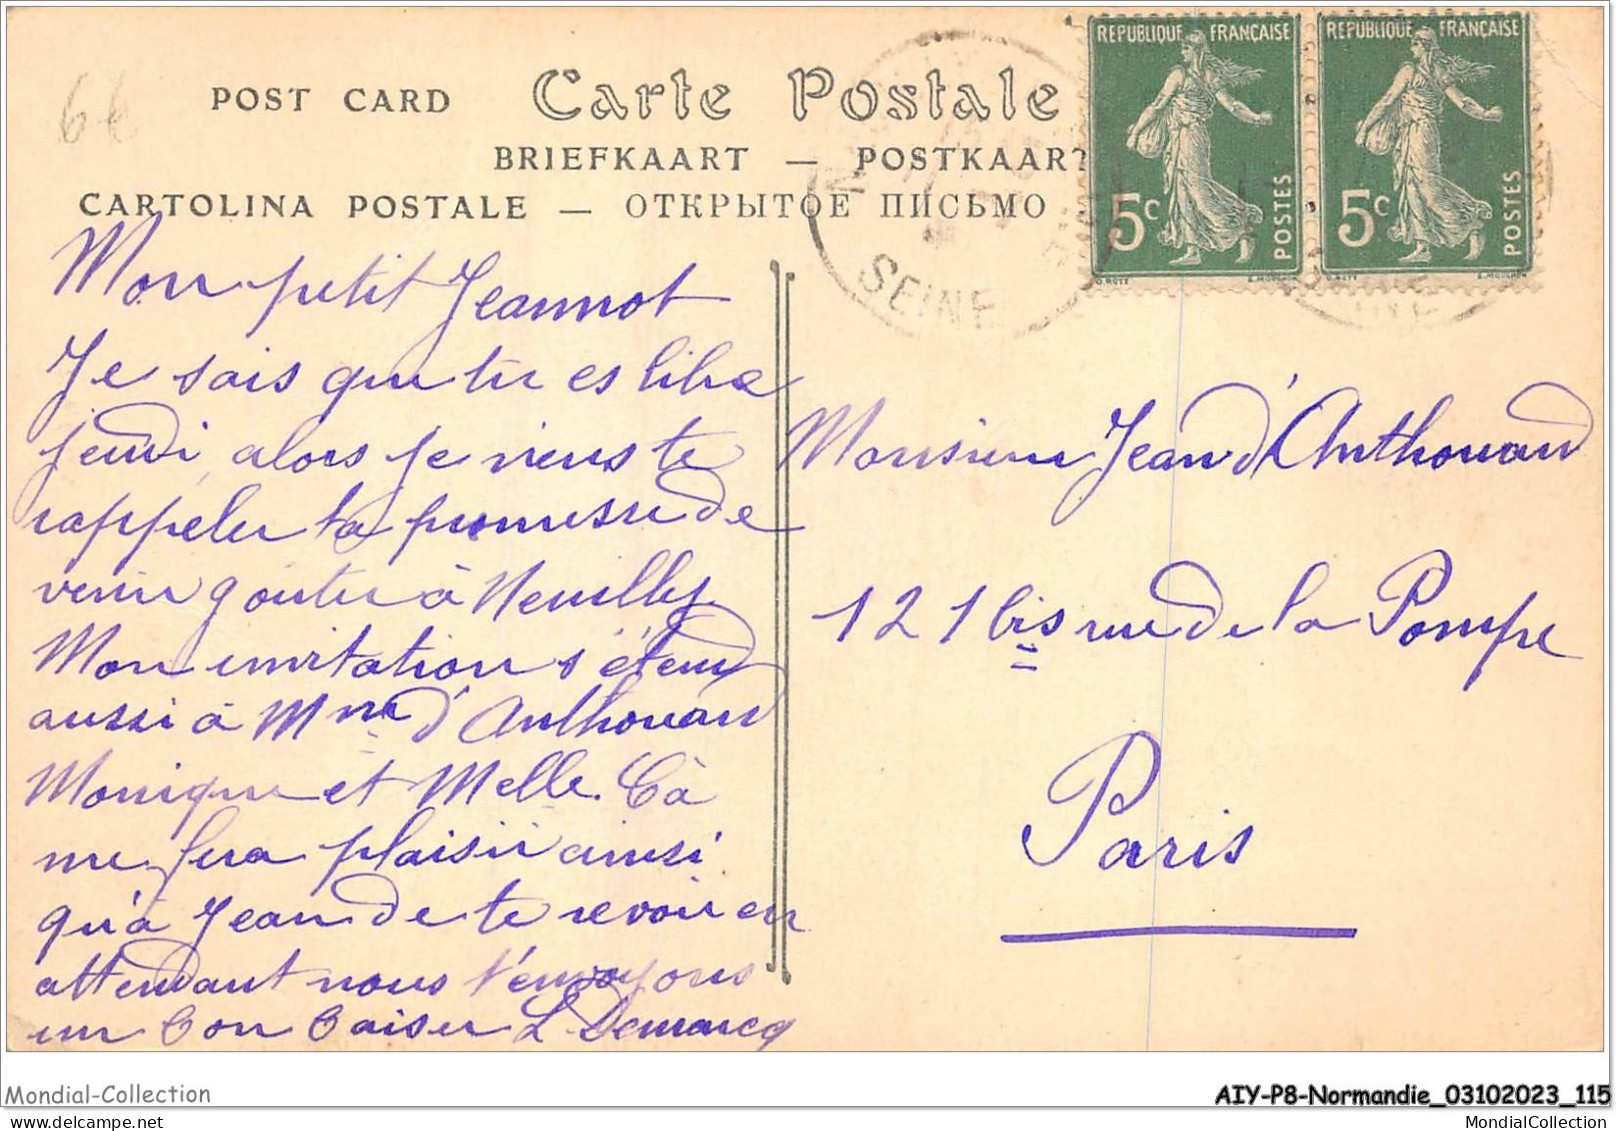 6€
POST CARD Carte Postale
BRIEFKAART — POSTKAART
CARTOLINA POSTALE — ОТКРЫТОЕ ПИСЬМО
SEINE
REPUBLIQUE FRANÇAISE
5c
POSTES
O.ROTY
REPUBLIQUE FRANÇAISE
5c
POSTES
O.ROTY E.MOUCHON
Mon petit Jeannot
Je sais que tu es libre
jeudi, alors je viens te
rappeler ta promesse de
venir goûter à Neuilly
Mon invitation s'étend
aussi à Mme d'Anthouard
Monique et Melle. Cà
me fera plaisir ainsi
qu'à Jean de te revoir en
attendant nous t'envoyons
un bon baiser L. Demarcq
Monsieur Jean d'Anthouard
121 bis rue de la Pompe
Paris
Mondial-Collection
AIY-P8-Normandie_03102023_115
MondialCollection